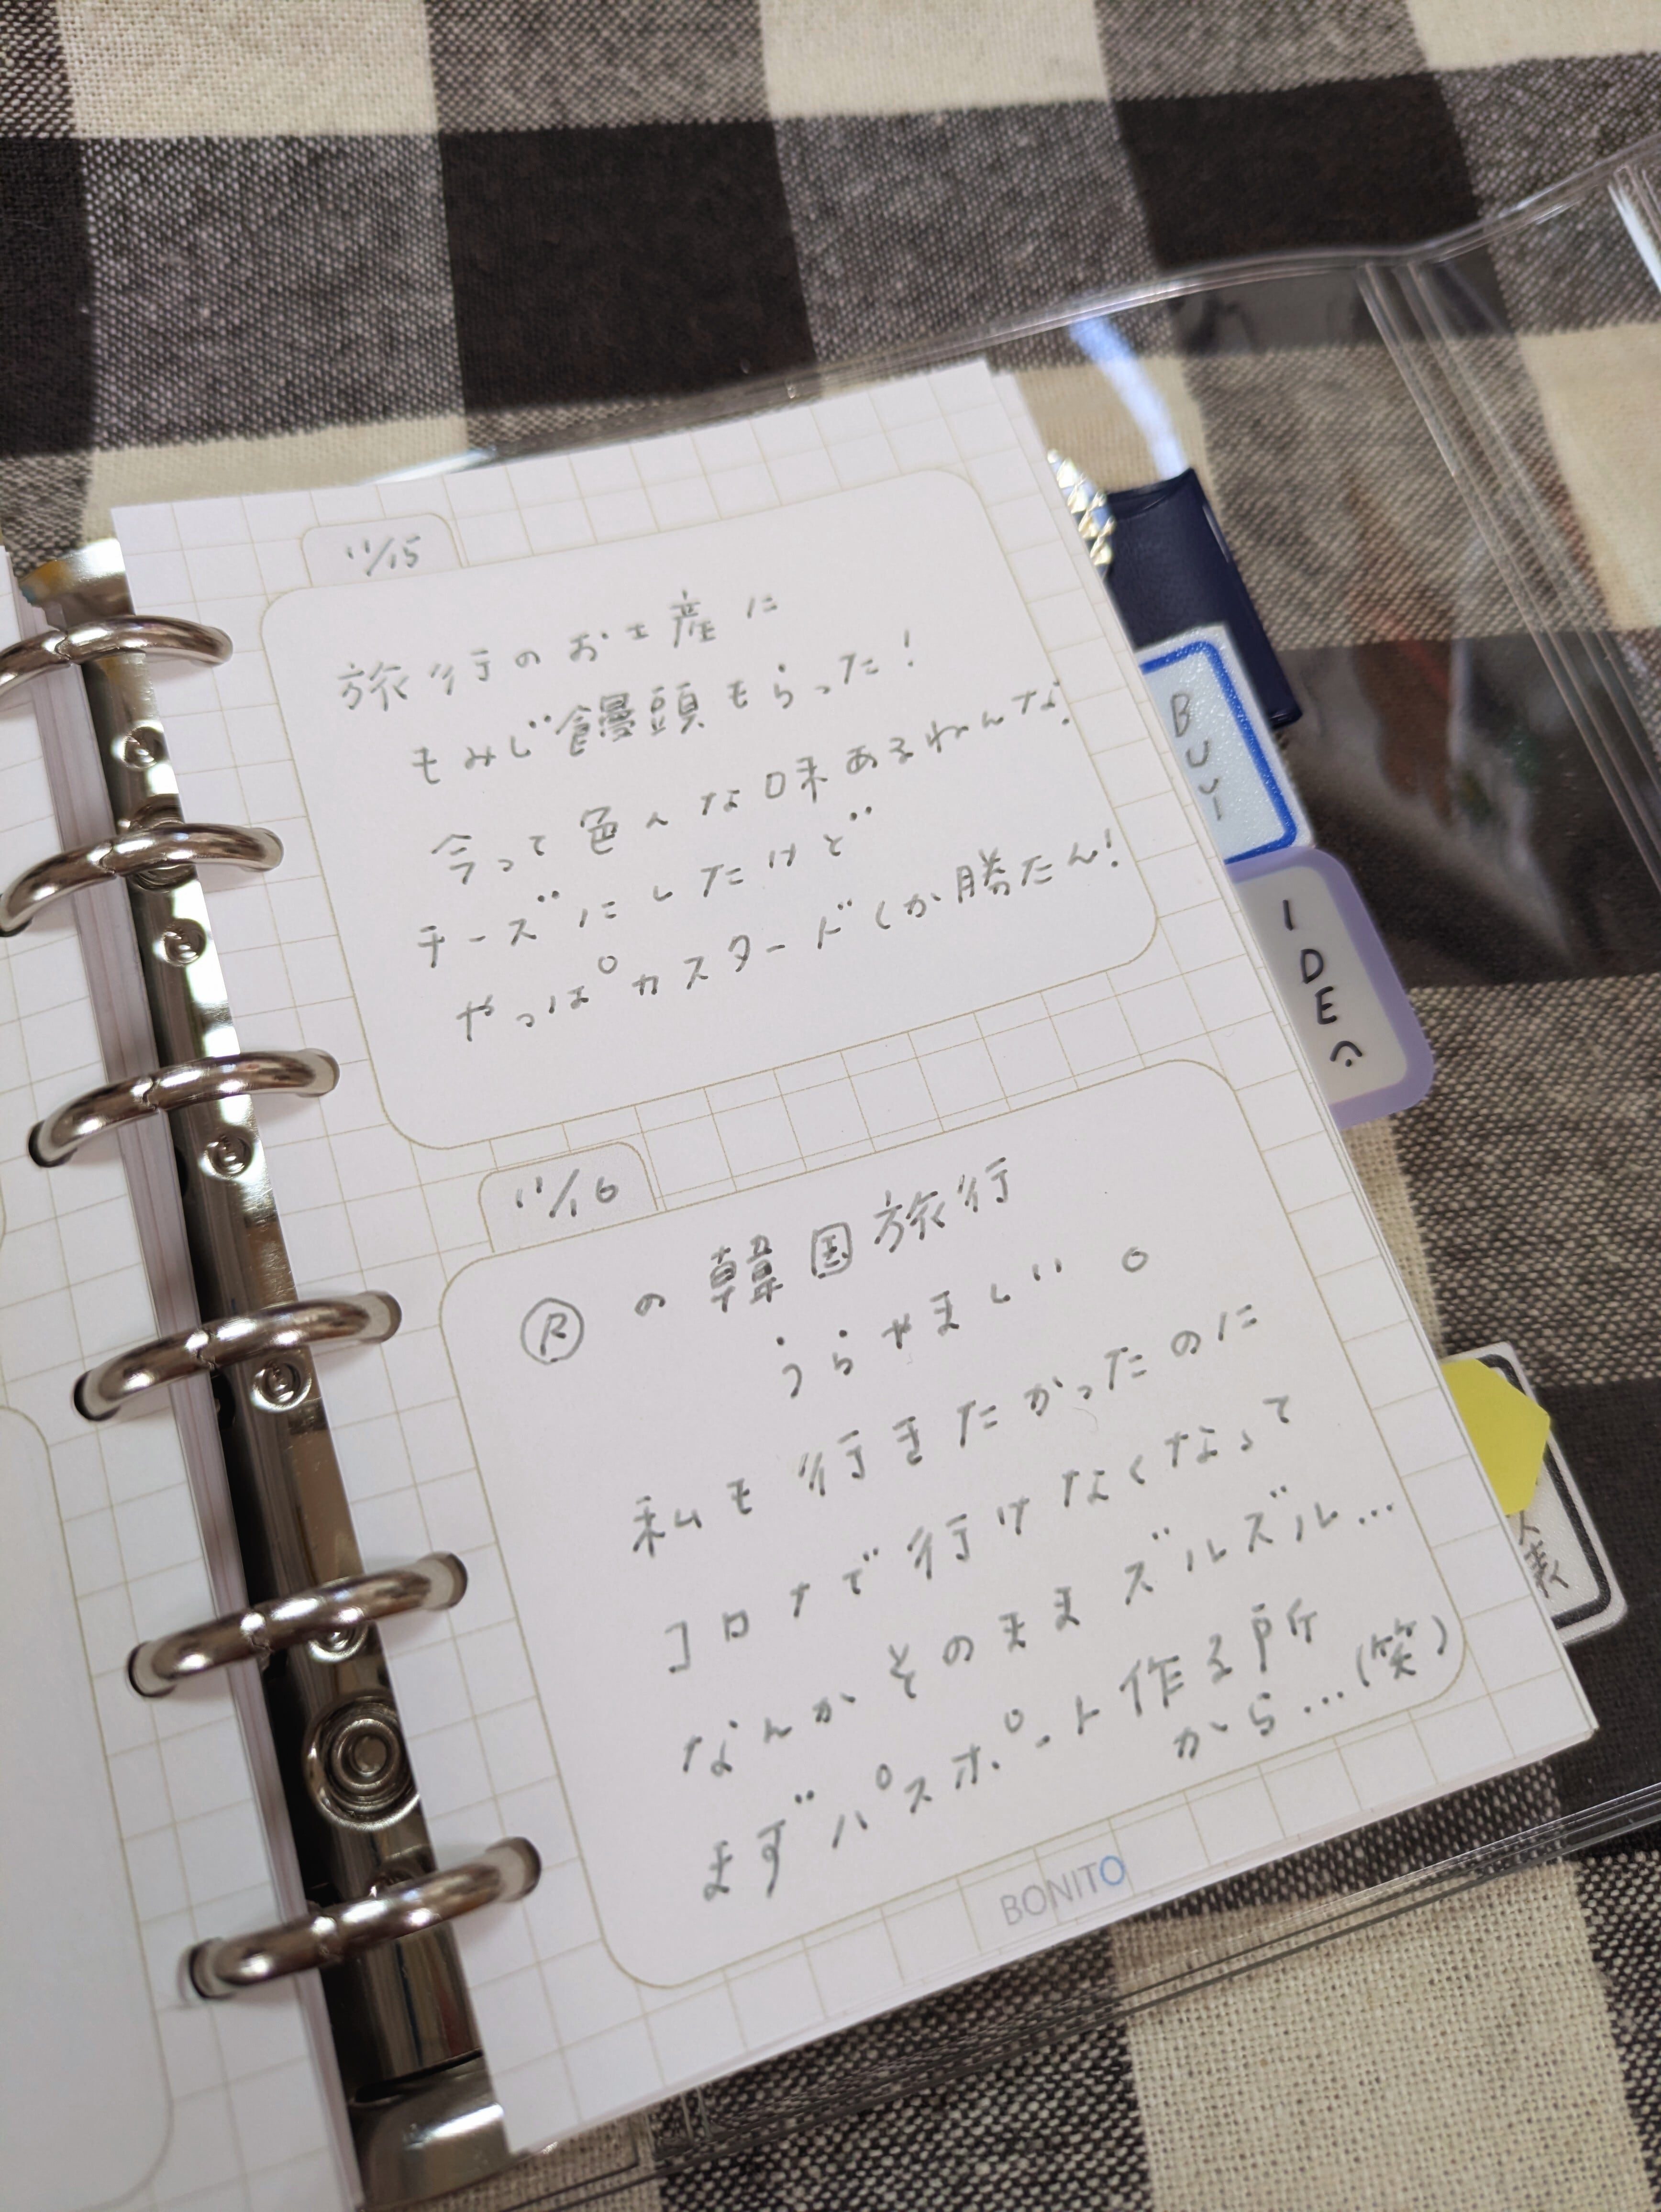 11/15
旅行のお土産に
もみじ饅頭もらった!
今って色んな味あるねんな。
チーズにしたけど
やっぱカスタードしか勝たん!
11/16
Ⓡの韓国旅行
うらやましい。
私も行きたかったのに
コロナで行けなくなって
なんかそのままズルズル…
まずパスポート作る所
から…(笑)
BONITO
BUY
IDEA
表